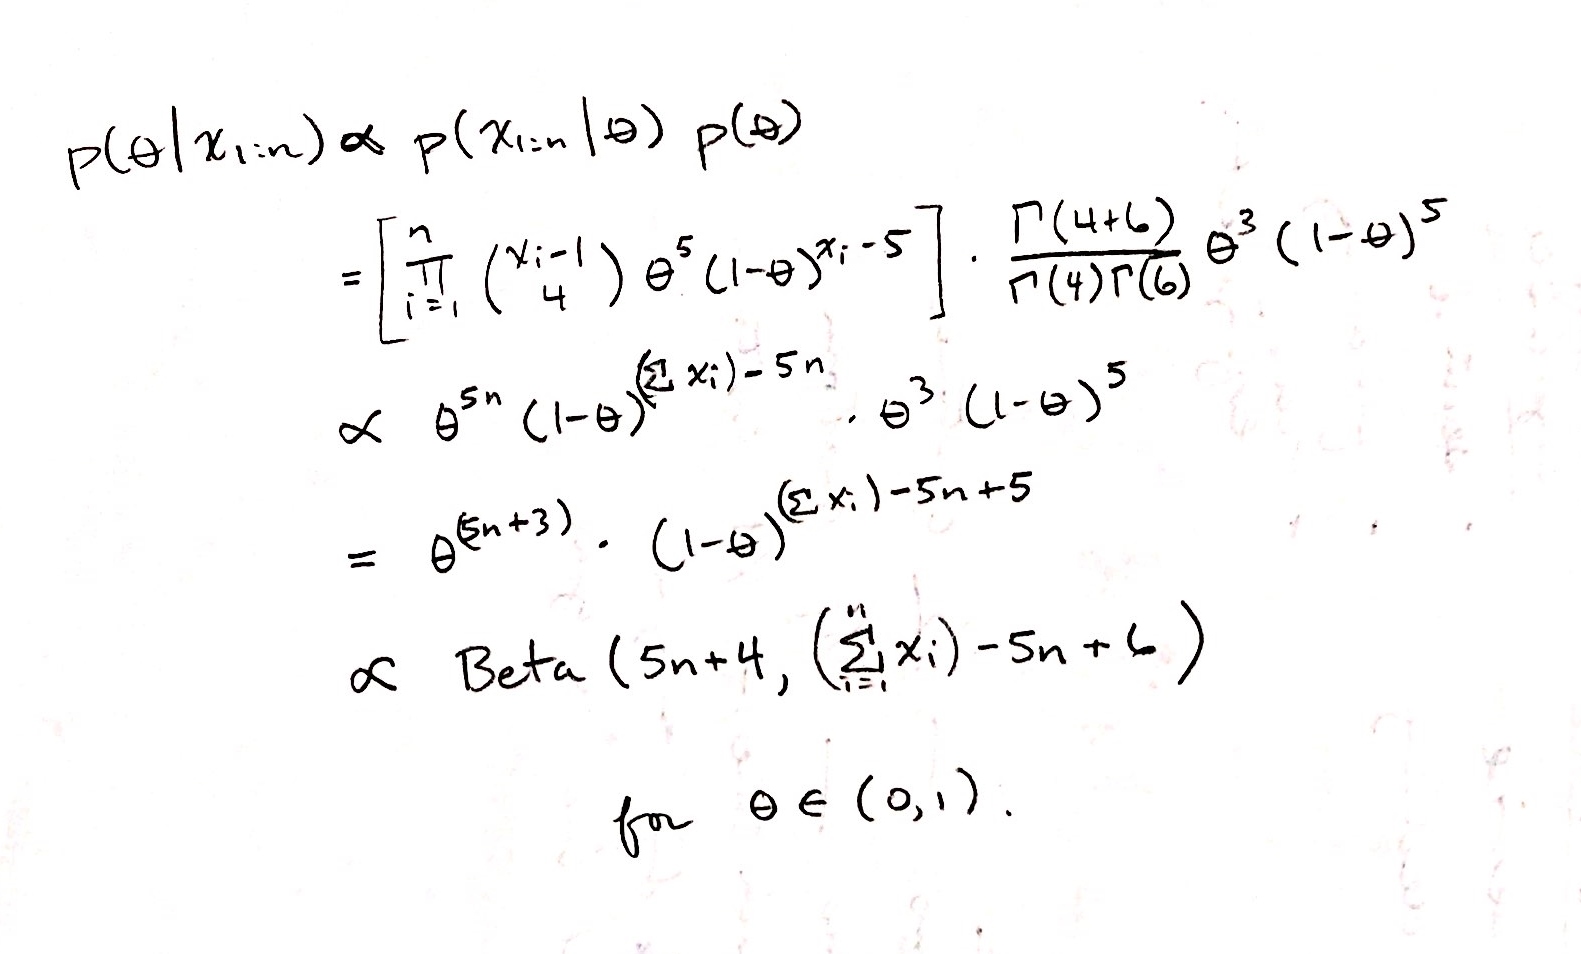 p(θ|x₁:ₙ) ∝ p(x₁:ₙ|θ) p(θ)
= [∏ᵢ₌₁ⁿ (xᵢ-1 choose 4) θ⁵ (1-θ)^(xᵢ-5)] · Γ(4+6)/(Γ(4)Γ(6)) θ³ (1-θ)⁵
∝ θ^(5n) (1-θ)^((Σ xᵢ)-5n) · θ³ (1-θ)⁵
= θ^(5n+3) · (1-θ)^((Σ xᵢ)-5n+5)
∝ Beta (5n+4, (∑ᵢ₌₁ⁿ xᵢ) - 5n + 6)
for θ ∈ (0,1).